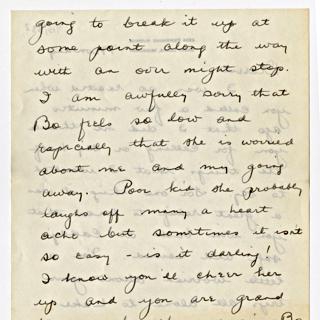 going to break it up at
some point along the way
with an over night stop.
I am awfully sorry that
Bo feels so low and
especially that she is worried
about me and my going
away. Poor kid she probably
laughs off many a heart
ache but sometimes it isn't
so easy - is it darling!
I know you'll cheer her
up and you are grand
Bo